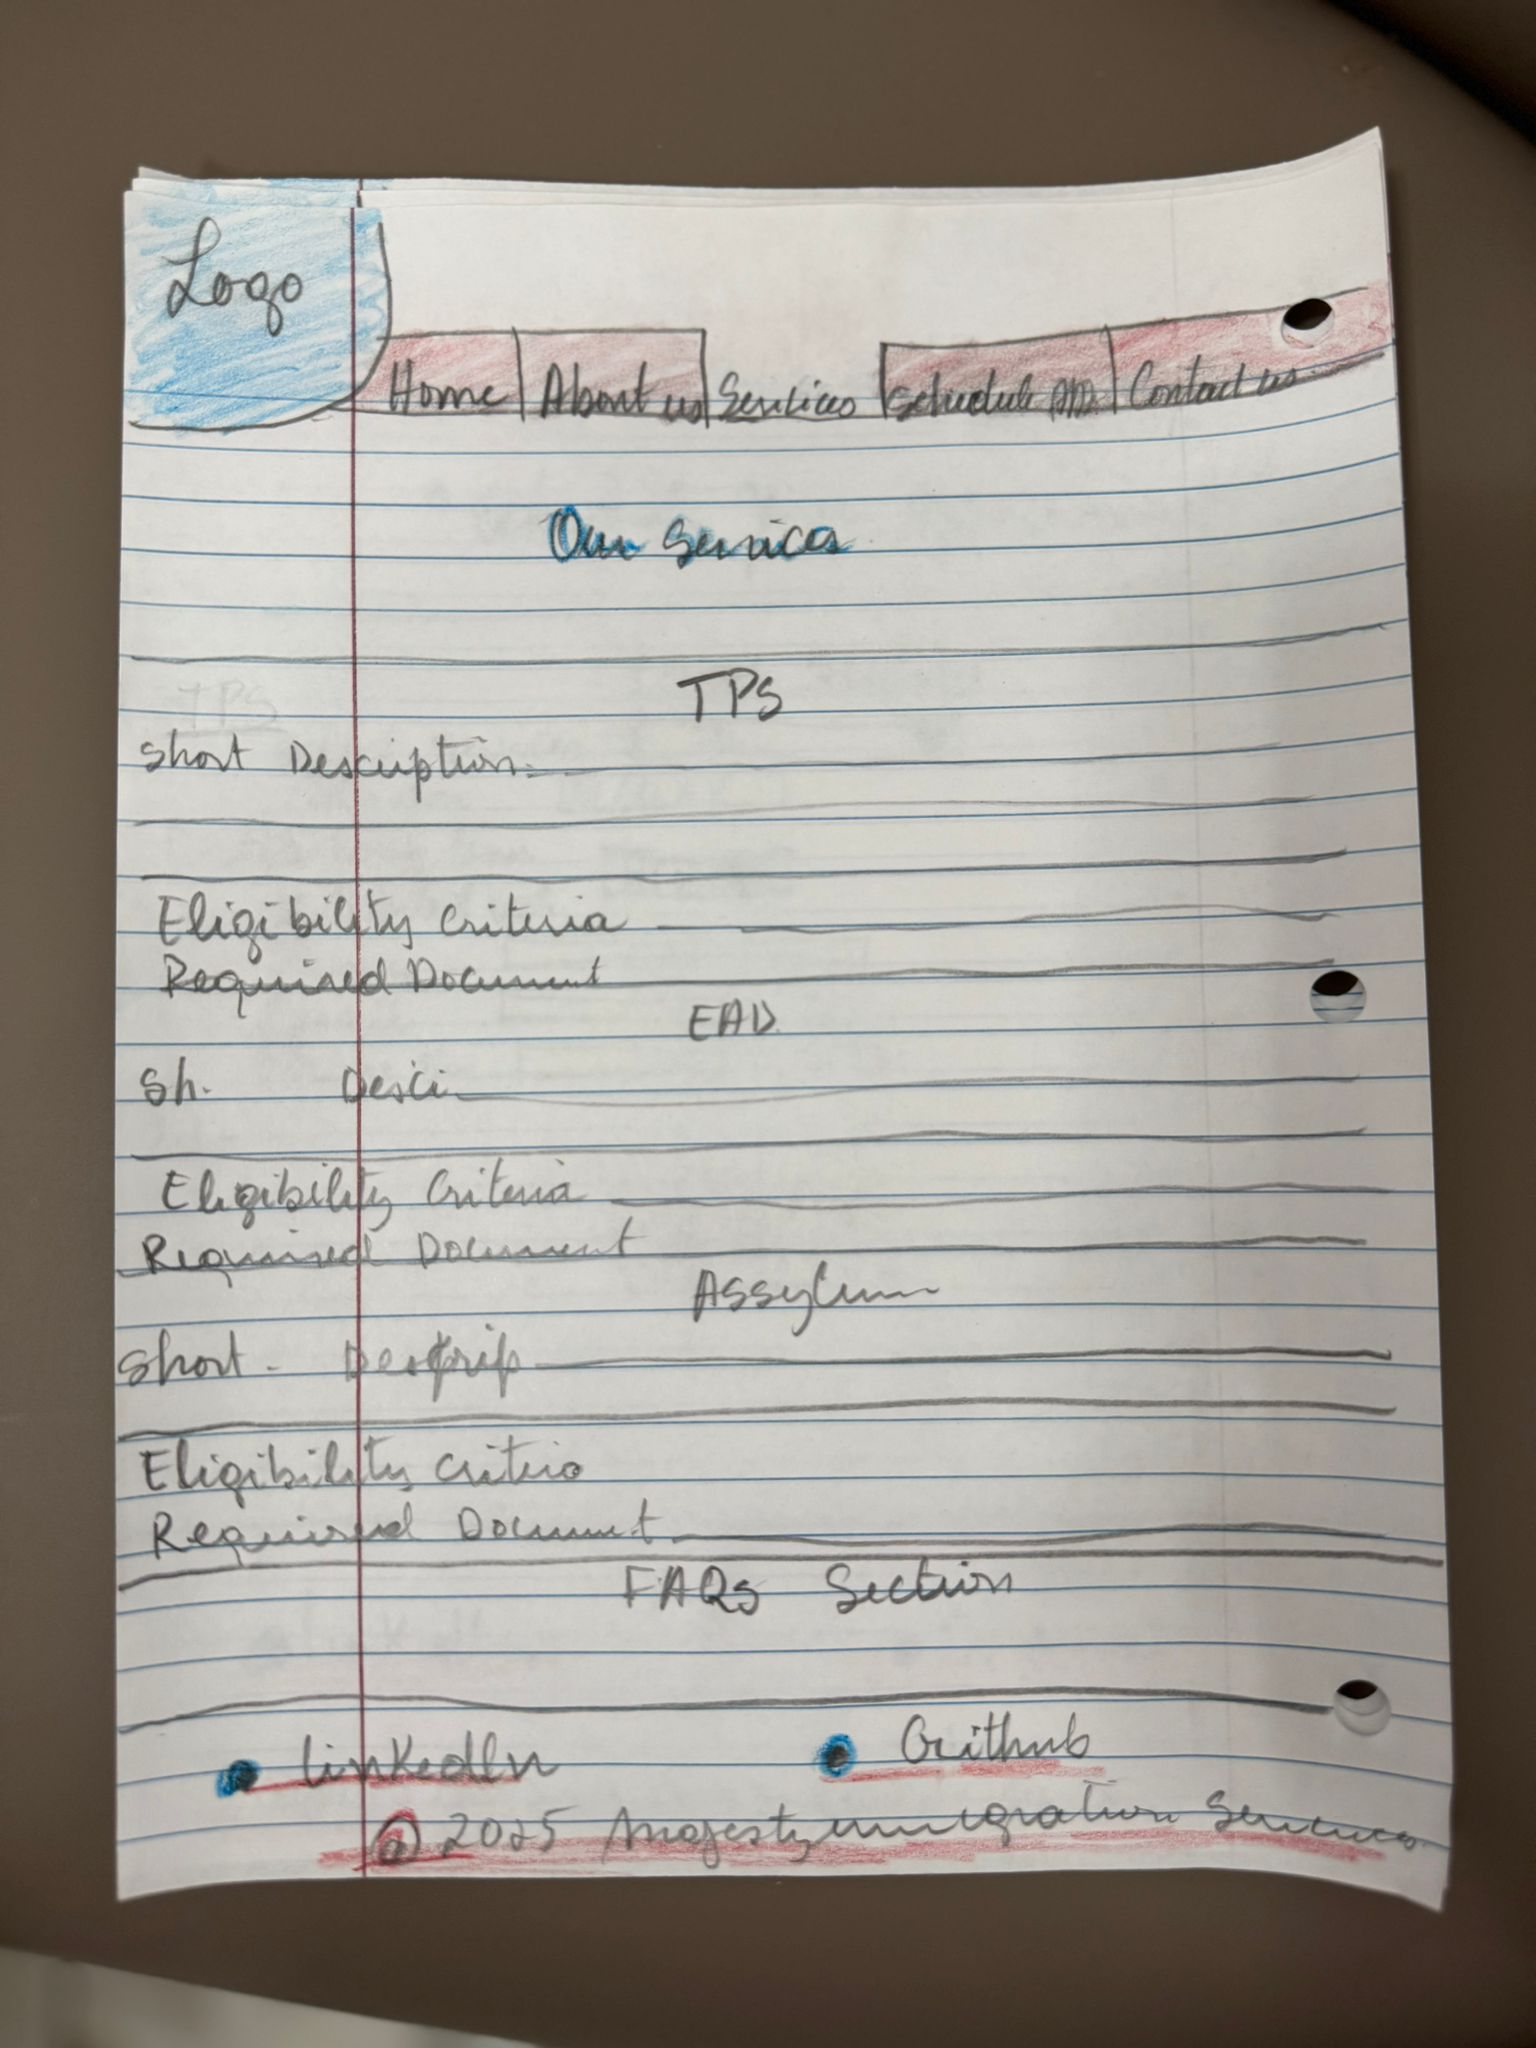 Logo
Home About us Services Schedule App Contact us
Our Services
TPS
TPS
Short Description
Eligibility Criteria
Required Document
EAD
Sh. Descri
Eligibility Criteria
Required Document
Assylum
Short. Descrip
Eligibility Criteria
Required Document
FAQs Section
linkedln Github
© 2025 Immigration Services